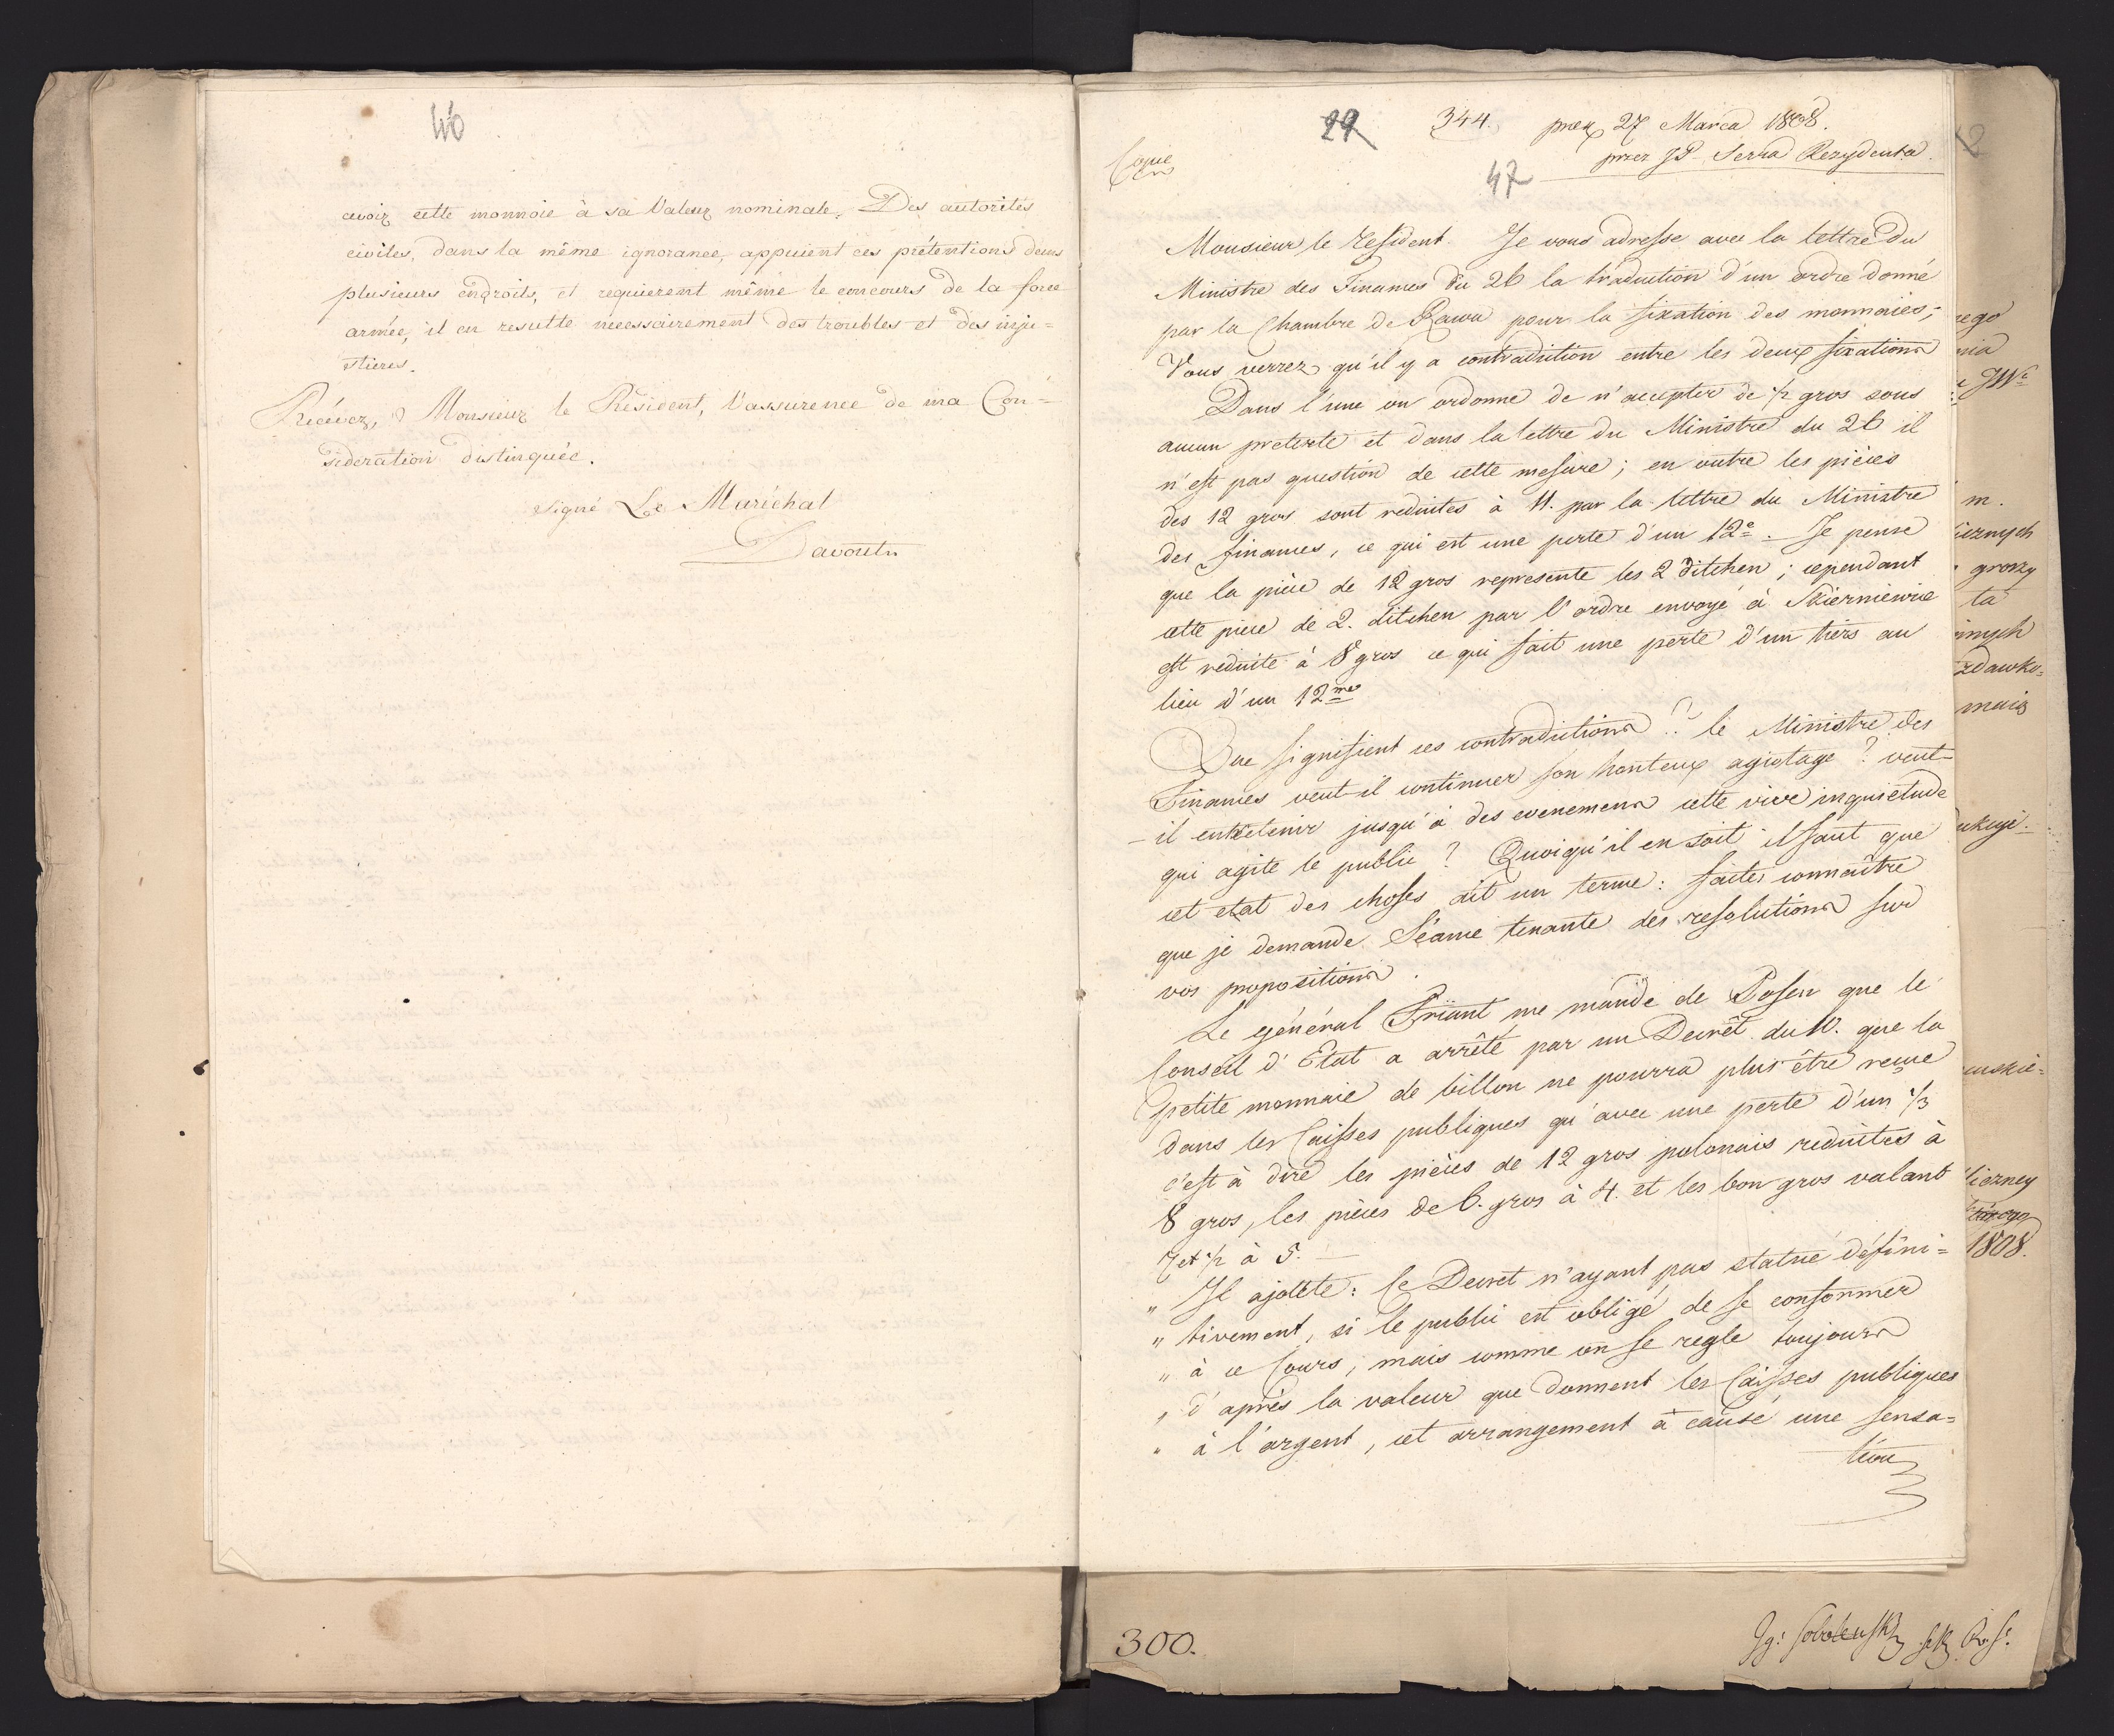 46
cevoir cette monnoie à sa Valeur nominale. Des autorités
civiles, dans la même ignorance, appuient ces prétentions dans
plusieurs endroits, et requierent même le concours de la force
armée, il en resulte necessairement des troubles et des inju=
stices.
Recévez, Monsieur le Résident, l'assurence de ma Con=
sideration distinquée.
signé Le Maréchal
Davoutn
29 344. prez 27 Marca 1808.
Copie
przez JP Serra Rezydenta.
47
Monsieur le resident. Je vous adresse avec la lettre du
Ministre des Finances du 26 la traduction d'un ordre donné
par la Chambre de Rawa pour la fixation des monnaies;
Vous verrez qu'il y a contradiction entre les deux fixations
Dans l'une on ordonne de n'accepter de ½ gros sous
aucun pretexte et dans la lettre du Ministre du 26 il
n'est pas question de cette mesure; en outre les pièces
des 12 gros sont reduites à 11. par la lettre du Ministre
des finances, ce qui est une perte d'un 12e. Je pense
que la pièce de 12 gros represente les 2 ditchen; cependant
cette piece de 2. ditchen par l'ordre envoyé à Skierniewice
est reduite à 8 gros ce qui fait une perte d'un tiers au
lieu d'un 12me
Que signifient ces contradictions? le Ministre des
Finances veut-il continuer son honteux agiotage? veut-
-il entretenir jusqu'à des evenemens cette vive inquietude
qui agite le public? Quoiqu'il en soit il faut que
cet etat des choses ait un terme: faites connaître
que je demande Séance tenante des resolutions sur
vos propositions.
Le général Friant me mande de Posen que le
Conseil d'Etat a arrêté par un Decrêt du 11. que la
petite monnaie de billon ne pourra plus être reçue
dans les Caisses publiques qu'avec une perte d'un ⅓
c'est à dire les pièces de 12 gros polonais reduites à
8 gros, les pièces de 6. gros à 4. et les bon gros valant
7 et ½ à 5.
" Il ajoute: Ce Decret n'ayant pas statué défini=
" tivement, si le public est obligé de se conformer
" à ce Cours, mais comme on se regle toujours
" d'après la valeur que donnent les Caisses publiques
" à l'argent, cet arrangement a causé une sensa=
tion
2
rego
nia
JWe
m.
icznych
groszy
ta
nnych
zdawko=
mais
ukcyi.
liczney
1808.
300.
Jg: Sobolewski